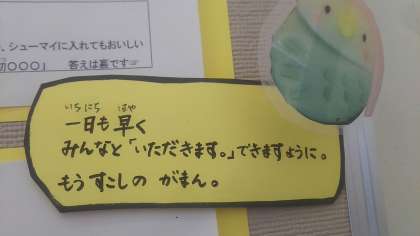 、シューマイに入れてもおいしい
〇〇〇」　答えは裏です☞
いちにち　はや
一日も早く
みんなと「いただきます。」できますように。
もうすこしの がまん。